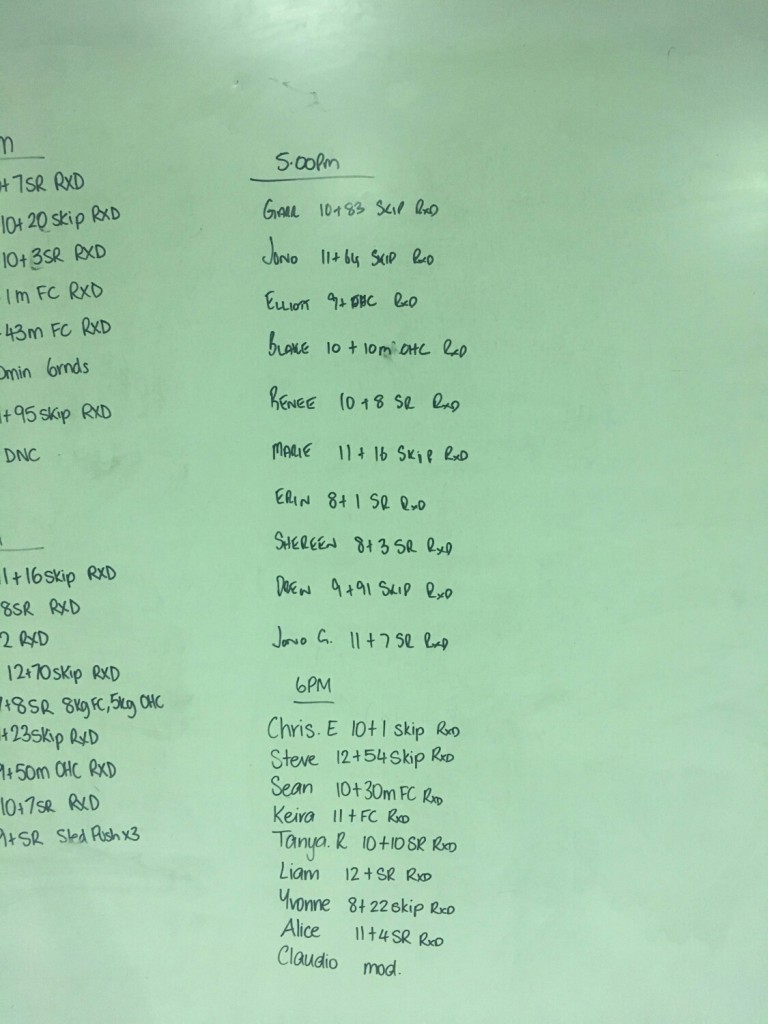 +7SR RXD
10+20 skip RXD
10+3SR RXD
1m FC RXD
43m FC RXD
min 6rnds
+95 skip RXD
DNC
11+16 skip RXD
8SR RXD
2 RXD
12+70 skip RXD
+8SR 8kg FC, 5kg OHC
+23 skip RXD
9+50m OHC RXD
10+7SR RXD
9+SR Sled Push x3
5.00pm
10+83 SKIP RxD
JONO 11+64 SKIP RxD
ELLIOTT 9+ OHC RxD
BLAKE 10 + 10m OHC RxD
RENEE 10+8 SR RxD
MARIE 11+16 SKIP RxD
ERIN 8+1 SR RxD
SHEREEN 8+3 SR RxD
DREW 9+91 SKIP RxD
Jono G. 11+7 SR RxD
6PM
Chris. E 10+1 skip RxD
Steve 12+54 Skip RxD
Sean 10+30m FC RxD
Keira 11+FC RxD
Tanya. R 10+10 SR RxD
Liam 12+SR RxD
Yvonne 8+22 skip RxD
Alice 11+4 SR RxD
Claudio mod.